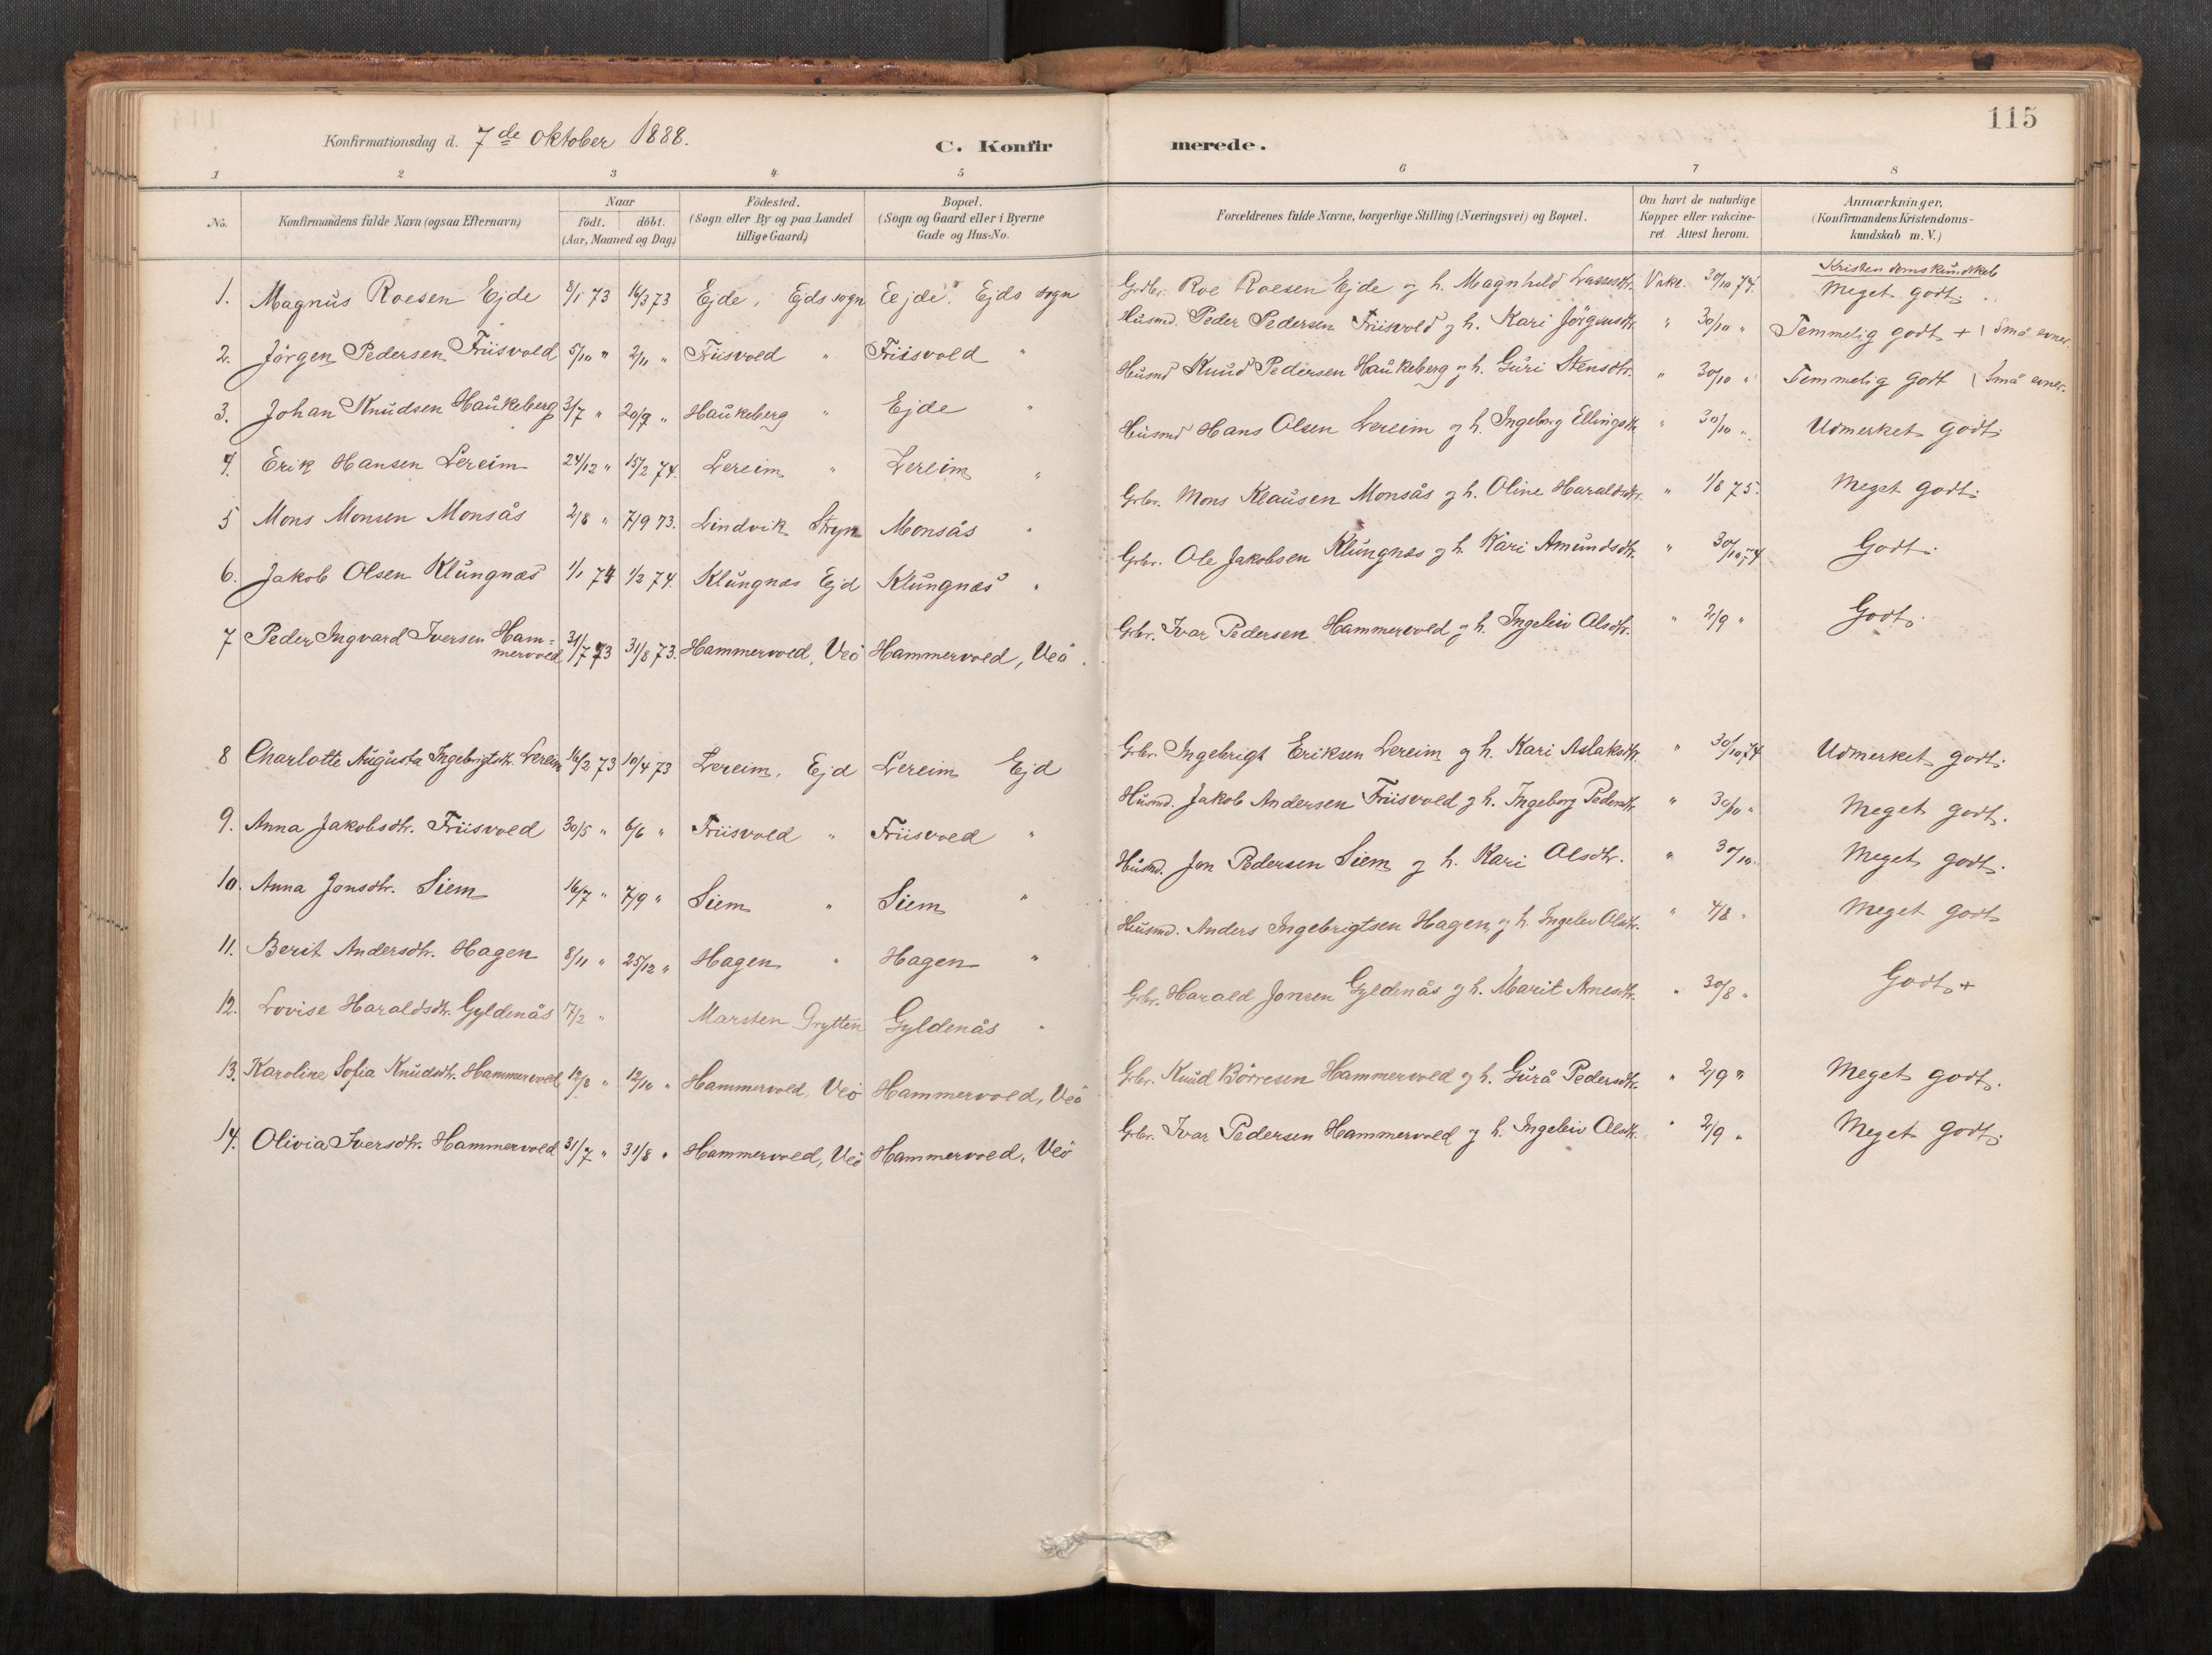 115
Konfirmationsdag d. 7de Oktober 1888.
C. Konfirmerede.
1 2 3 4 5 6 7 8
No. Konfirmandens fulde Navn (ogsaa Efternavn) Naar födt. döbt. (Aar, Maaned og Dag.) Födested. (Sogn eller By og paa Landet tillige Gaard.) Bopæl. (Sogn og Gaard eller i Byerne Gade og Hus-No. Forældrenes fulde Navne, borgerlige Stilling (Næringsvei) og Bopæl. Om havt de naturlige Kopper eller vakcineret Attest herom. Anmærkninger, (Konfirmandens Kristendomskundskab m. V.)
Kristendomskundskab
1. Magnus Roesen Ejde 8/1 73 16/3 73 Ejde, Ejds sogn Eejde, Ejds sogn Grdbr. Roe Roesen Ejde og h. Magnhild Lassesdtr. Vakc. 30/10 74. Meget godt.
2. Jörgen Pedersen Friisvold 5/10 " 2/11 " Friisvold " Friisvold " Husmd. Peder Pedersen Friisvold og h. Kari Jörgensdtr. " 30/10 " Temmelig godt + ( Små evner.
3. Johan Knudsen Haukeberg 3/7 " 20/9 " Haukeberg " Ejde " Husmd Knud Pedersen Haukeberg og h. Guri Stensdtr. " 30/10 " Temmelig godt ( Små evner.
4. Erik Hansen Lereim 24/12 " 15/2 74. Lereim " Lereim " Husmd Hans Olsen Lereim og h. Ingeborg Ellingsdtr " 30/10 " Udmerket godt.
5 Mons Monsen Monsås 2/8 " 7/9 73. Lindvik Stryn Monsås " Grbr. Mons Klausen Monsås og h. Oline Haraldsdtr. " 1/8 75. Meget godt.
6. Jakob Olsen Klungnæs 1/1 74 1/2 74. Klungnæs Ejd Klungnæs " Grbr. Ole Jakobsen Klungnæs og h. Kari Amundsdtr. " 30/10 74 Godt.
7 Peder Ingvard Iversen Hammervold 31/7 73 31/8 73. Hammervold, Veö Hammervold, Veö. Grbr. Ivar Pedersen Hammervold og h. Ingeleiv Olsdtr. " 2/9 " Godt.
8 Charlotte Augusta Ingebrigtsdtr. Lereim 16/2 73 10/4 73 Lereim, Ejd Lereim Ejd Grbr. Ingebrigt Eriksen Lereim og h. Kari Aslaksdtr. " 30/10 74 Udmerket godt.
9. Anna Jakobsdtr. Friisvold 30/5 " 6/6 " Friisvold " Friisvold " Husmd. Jakob Andersen Friisvold og h. Ingeborg Pedersdtr " 30/10 " Meget godt.
10. Anna Jonsdtr. Siem 16/7 " 7/9 " Siem " Siem " Husmd. Jon Pedersen Siem og h. Kari Olsdtr. " 30/10 " Meget godt.
11. Berit Andersdtr. Hagen 8/11 " 25/12 " Hagen " Hagen " Husmd. Anders Ingebrigtsen Hagen og h. Ingelev Olsdtr. " 4/8 " Meget godt
12. Lovise Haraldsdtr. Gyldenås 17/2 " Marsten Grytten Gyldenås " Grbr. Harald Jonsen Gyldenås og h. Marit Arnesdtr. " 30/8 " Godt +
13. Karoline Sofia Knudsdtr. Hammervold 12/8 " 12/10 " Hammervold, Veö Hammervold, Veö Grbr. Knud Börresen Hammervold og h. Gurå Pedersdtr. " 2/9 " Meget godt.
14. Olivia Iversdtr. Hammervold 31/7 " 31/8 " Hammervold, Veö Hammervold, Veö Grbr. Ivar Pedersen Hammervold og h. Ingeleiv Olsdtr. " 2/9 " Meget godt.